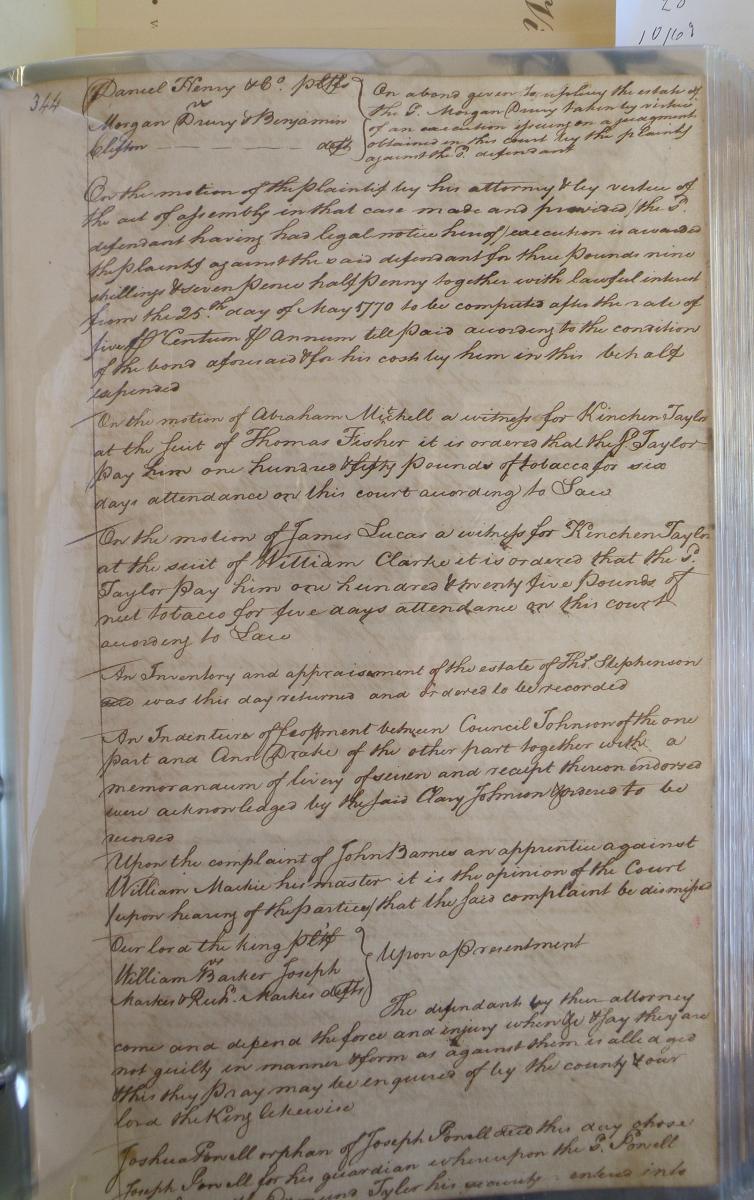 344
Daniel Henry & Co. pltfs
vs
Morgan Drury & Benjamin
Clifton defts
On a bond given to replevy the estate of
the sd. Morgan Drury taken by virtue
of an execution issuing on a judgment
obtained in this court by the plaintifs
against the sd. defendant
On the motion of the plaintif by his attorney & by vertue of
the act of assembly in that case made and provided (the sd.
defendant having had legal notice hereof) execution is awarded
the plaintif against the said defendant for three pounds nine
shillings & seven pence half penny together with lawful interest
from the 25.th day of May 1770 to be computed after the rate of
five P Centum P Annum till paid according to the condition
of the bond aforesaid & for his costs by him in this behalf
expended
On the motion of Abraham Mitchell a witness for Kinchen Taylor
at the suit of Thomas Fisher it is ordered that the sd. Taylor
pay him one hundred & fifty pounds of tobacco for six
days attendance on this court according to Law
On the motion of James Lucas a witness for Kinchen Taylor
at the suit of William Clarke it is ordered that the sd.
Taylor pay him one hundred & twenty five pounds of
net tobacco for five days attendance on this court
according to Law
An Inventory and appraisement of the estate of Thos. Stephenson
decd was this day returned and ordered to be recorded
An Indenture of feoffment between Council Johnson of the one
part and Ann Drake of the other part together with a
memorandum of livery of seisen and receipt thereon endorsed
were acknowledged by the said Johnson & ordered to be
recorded
Upon the complaint of John Barnes an apprentice against
William Mackie his master it is the opinion of the Court
(upon hearing of the parties) that the said complaint be dismissed
Our lord the king pltf
vs
William Barker Joseph
Markes & Richd. Markes defts
Upon a presentment
The defendants by their attorney
come and defend the force and injury when &c & say they are
not guilty in manner & form as against them is alledged
& this they pray may be enquired of by the county & our
lord the King likewise
Joshua Powell orphan of Joseph Powell decd this day chose
Joseph Powell for his guardian whereupon the sd. Powell
Tyler his security entered into